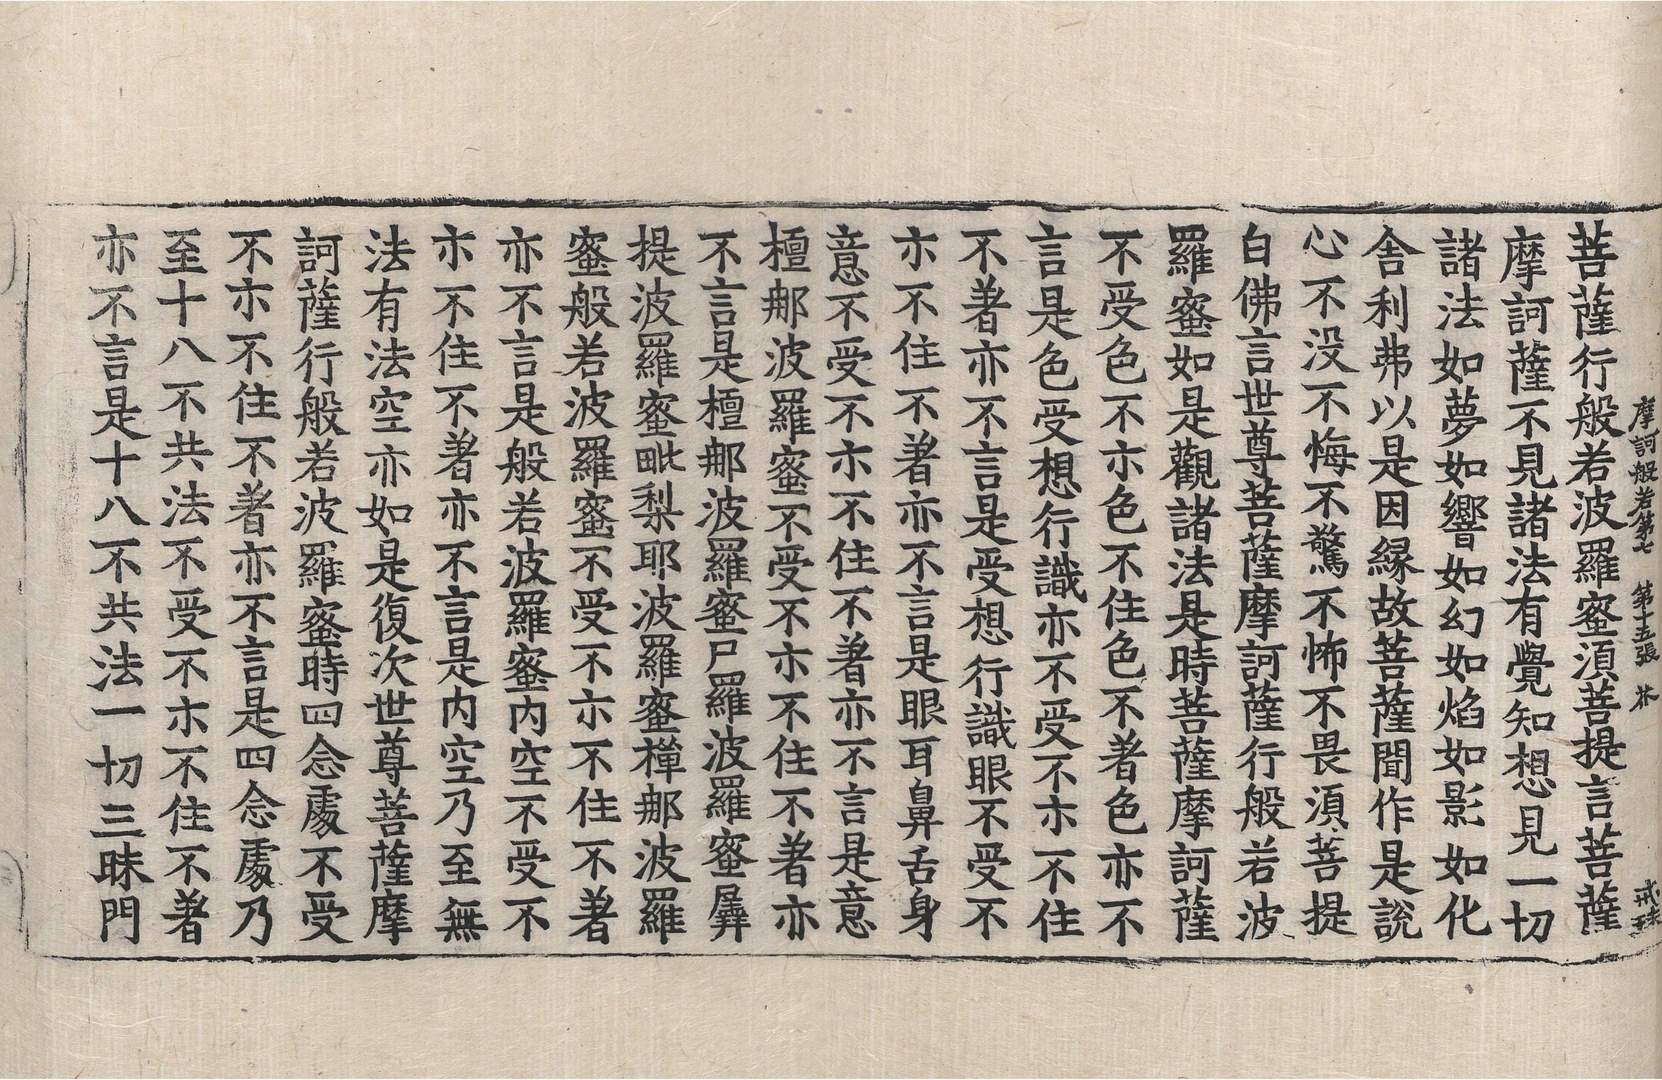 摩訶般若第七 第十五張 芥
菩薩行般若波羅蜜須菩提言菩薩
摩訶薩不見諸法有覺知想見一切
諸法如夢如響如幻如焰如影如化
舍利弗以是因緣故菩薩聞作是說
心不没不悔不驚不怖不畏須菩提
白佛言世尊菩薩摩訶薩行般若波
羅蜜如是觀諸法是時菩薩摩訶薩
不受色不示色不住色不著色亦不
言是色受想行識亦不受不示不住
不著亦不言是受想行識眼不受不
示不住不著亦不言是眼耳鼻舌身
意不受不示不住不著亦不言是意
檀那波羅蜜不受不示不住不著亦
不言是檀那波羅蜜尸羅波羅蜜羼
提波羅蜜毗梨耶波羅蜜禪那波羅
蜜般若波羅蜜不受不示不住不著
亦不言是般若波羅蜜内空不受不
示不住不著亦不言是内空乃至無
法有法空亦如是復次世尊菩薩摩
訶薩行般若波羅蜜時四念處不受
不示不住不著亦不言是四念處乃
至十八不共法不受不示不住不著
亦不言是十八不共法一切三昧門